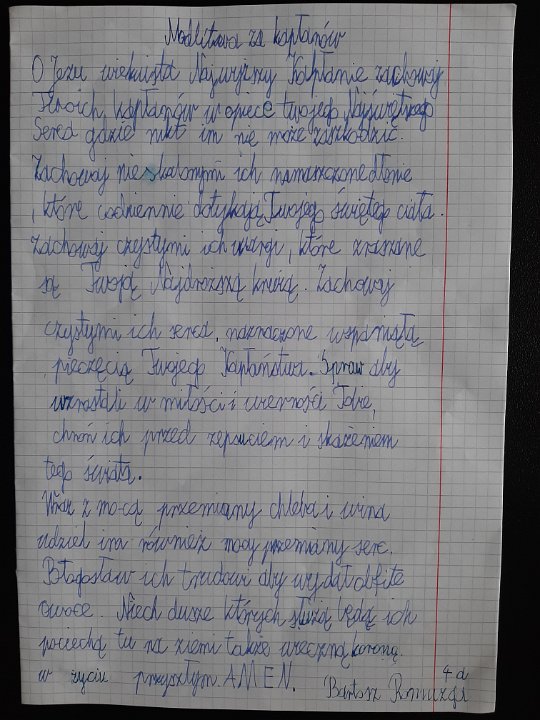 Modlitwa za kapłanów
O Jezu wiekuista Najwyższy Kapłanie zachowaj
Twoich kapłanów w opiece twojego Najświętszego
Serca gdzie nikt im nie może zaszkodzić.
Zachowaj nieskalanymi ich namaszczone dłonie
, które codziennie dotykają Twojego świętego ciała.
Zachowaj czystymi ich wargi, które zraszane
są Twoją Najdroższą krwią. Zachowaj
czystymi ich serca, naznaczone wspaniałą
pieczęcią Twojego Kapłaństwa. Spraw aby
wzrastali w miłości i wierności Tobie,
chroń ich przed zepsuciem i skażeniem
tego świata.
Wraz z mocą przemiany chleba i wina
udziel im również mocy przemiany serc.
Błogosław ich trudowi aby wydał obfite
owoce. Niech dusze których służą będą ich
pociechą tu na ziemi także wieczną koroną
w życiu przyszłym. AMEN.
4 d
Bartosz